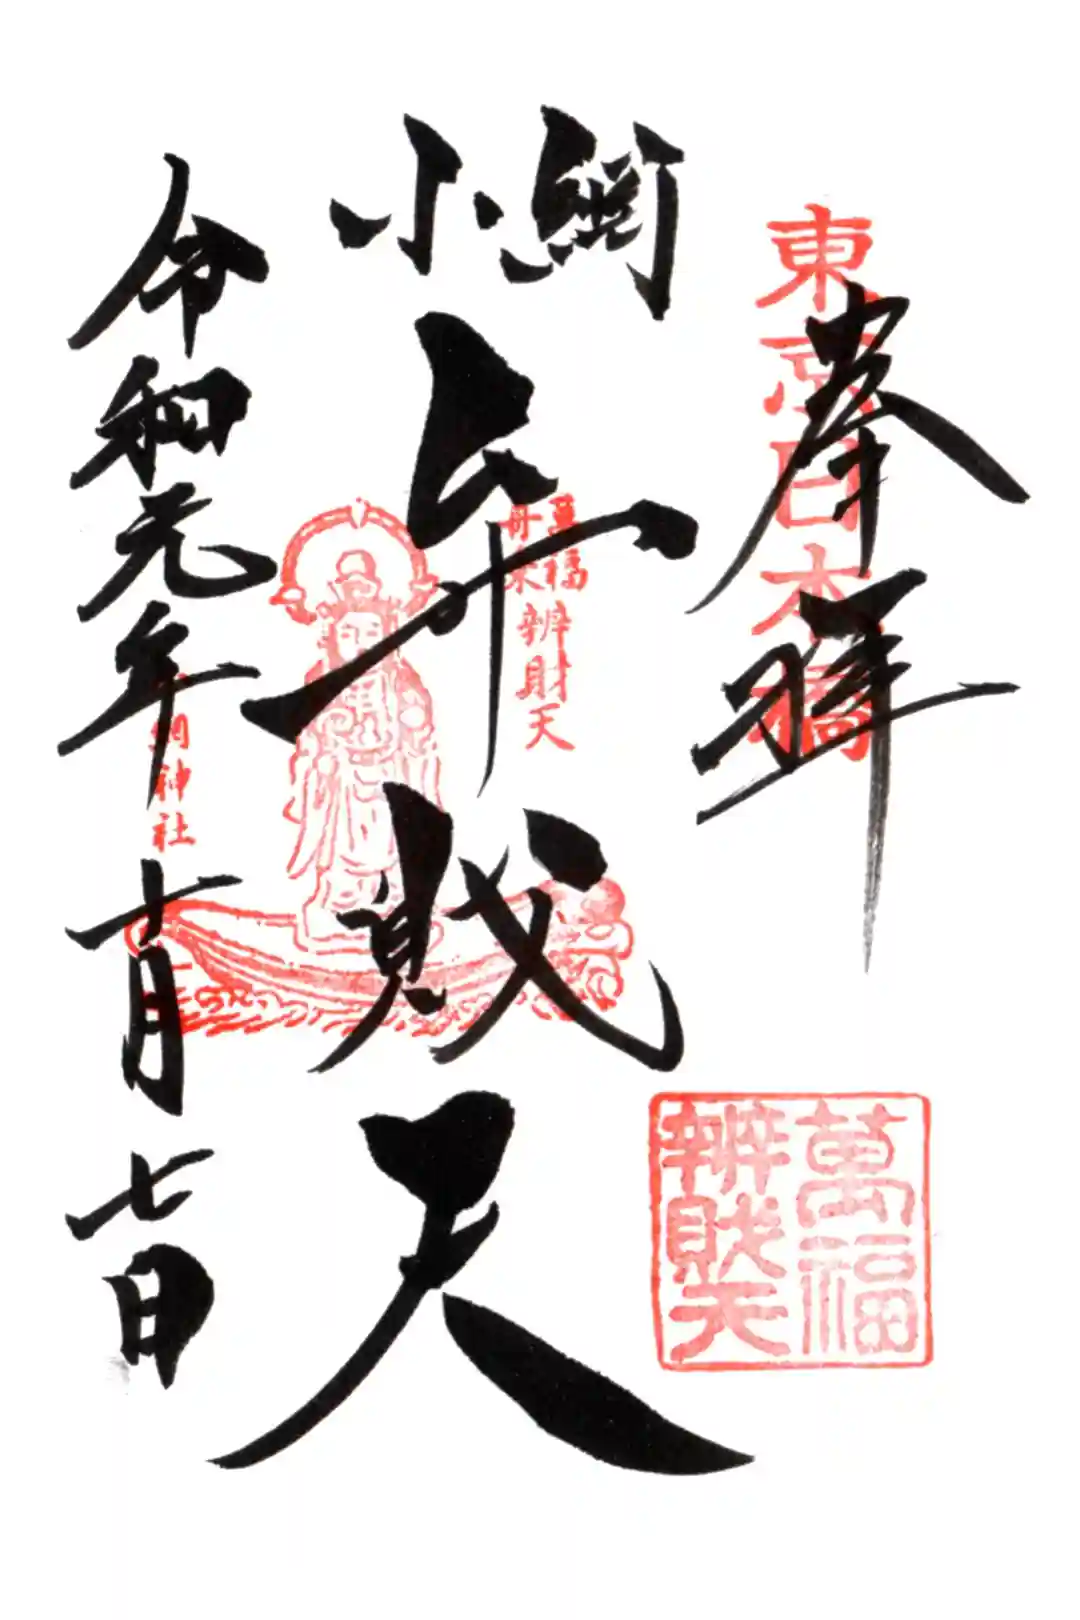 東京日本橋
奉拝
萬福
辨財天
小網
弁財天
萬福
舟乗
辨財天
網神社
令和元年十月七日